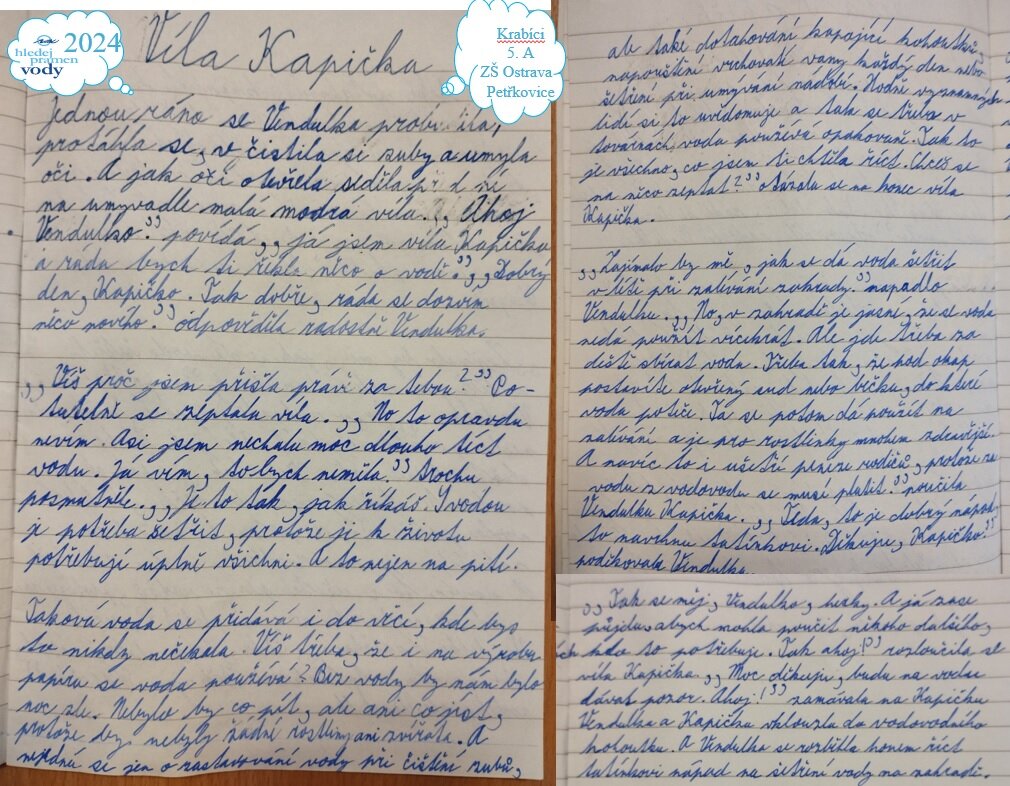 2024
hledej
pramen
vody
Krabíci
5. A
ZŠ Ostrava
Petřkovice
Víla Kapička
Jednou ráno se Vendulka probudila,
protáhla se, v čistila si zuby a umyla
oči. A jak oči otevřela seděla před ní
na umyvadle malá modrá víla. ,,Ahoj
Vendulko." povídá, ,,já jsem víla Kapička
a ráda bych ti řekla něco o vodě." ,,Dobrý
den, Kapičko. Tak dobře, ráda se dozvím
něco nového." odpověděla radostně Vendulka.
,,Víš proč jsem přišla právě za tebou?" Po-
tutelně se zeptala víla. ,,No to opravdu
nevím. Asi jsem nechala moc dlouho téct
vodu. Já vím, to bych neměla." trochu
posmutněle. ,,Je to tak, jak říkáš. S vodou
je potřeba šetřit, protože ji k životu
potřebují úplně všichni. A to nejen na pití.
Taková voda se přidává i do věcí, kde bys
to nikdy nečekala. Víš třeba, že i na výrobu
papíru se voda používá? Bez vody by nám bylo
moc zle. Nebylo by co pít, ale ani co jíst,
protože by nebyly žádné rostliny ani zvířata. A
nejedná se jen o zastavování vody při čištění zubů,
ale také dotahování kapající kohoutků,
napouštění vrchovaté vany každý den nebo
šetření při umývání nádobí. Hodně významných
lidí si to uvědomuje a tak se třeba v
továrnách, voda používá opakovaně. Tak to
je všechno, co jsem ti chtěla říct. Chceš se
na něco zeptat?" otázala se na konec víla
Kapička.
,,Zajímalo by mě, jak se dá voda šetřit
v létě při zalívání zahrady." napadlo
Vendulku. ,,No, v zahradě je jasné, že se voda
nedá použít vícekrát. Ale jde třeba za
deště sbírat vodu. Třeba tak, že pod okap
postavíte otevřený sud nebo bečku, do které
voda poteče. Ta se potom dá použít na
zalívání a je pro rostlinky mnohem zdravější.
A navíc to i ušetří peníze rodičů, protože za
vodu z vodovodu se musí platit." poučila
Vendulku Kapička. ,,Teda, to je dobrý nápad,
to navrhnu tatínkovi. Děkuju, Kapičko."
poděkovala Vendulka.
,,Tak se měj, Vendulko, hezky. A já zase
půjdu, abych mohla poučit někoho dalšího,
kdo to potřebuje. Tak ahoj!" rozloučila se
víla Kapička. ,,Moc děkuji, budu na vodu
dávat pozor. Ahoj!" zamávala na Kapičku
Vendulka a Kapička vklouzla do vodovodního
kohoutku. A Vendulka se rozběhla honem říct
tatínkovi nápad na šetření vody na zahradě.